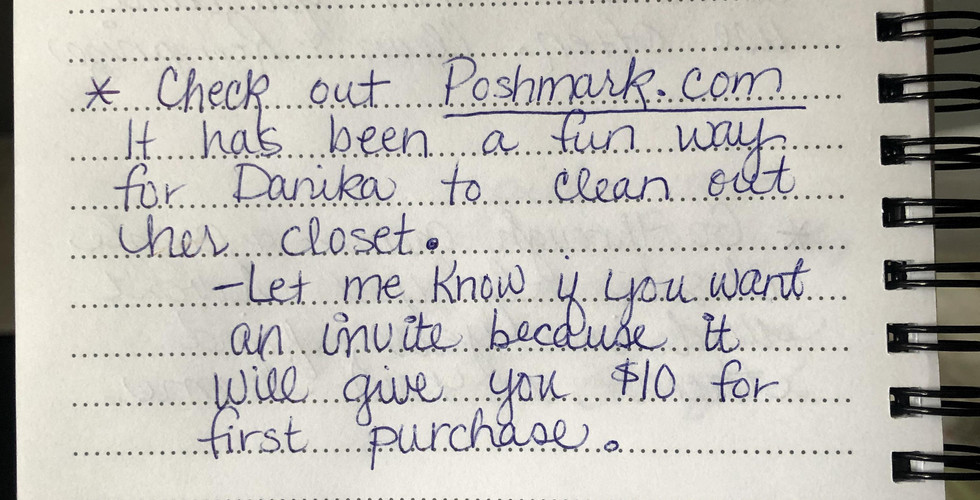 * Check out Poshmark.com
It has been a fun way
for Danika to clean out
her closet.
-Let me know if you want
an invite because it
will give you $10 for
first purchase.